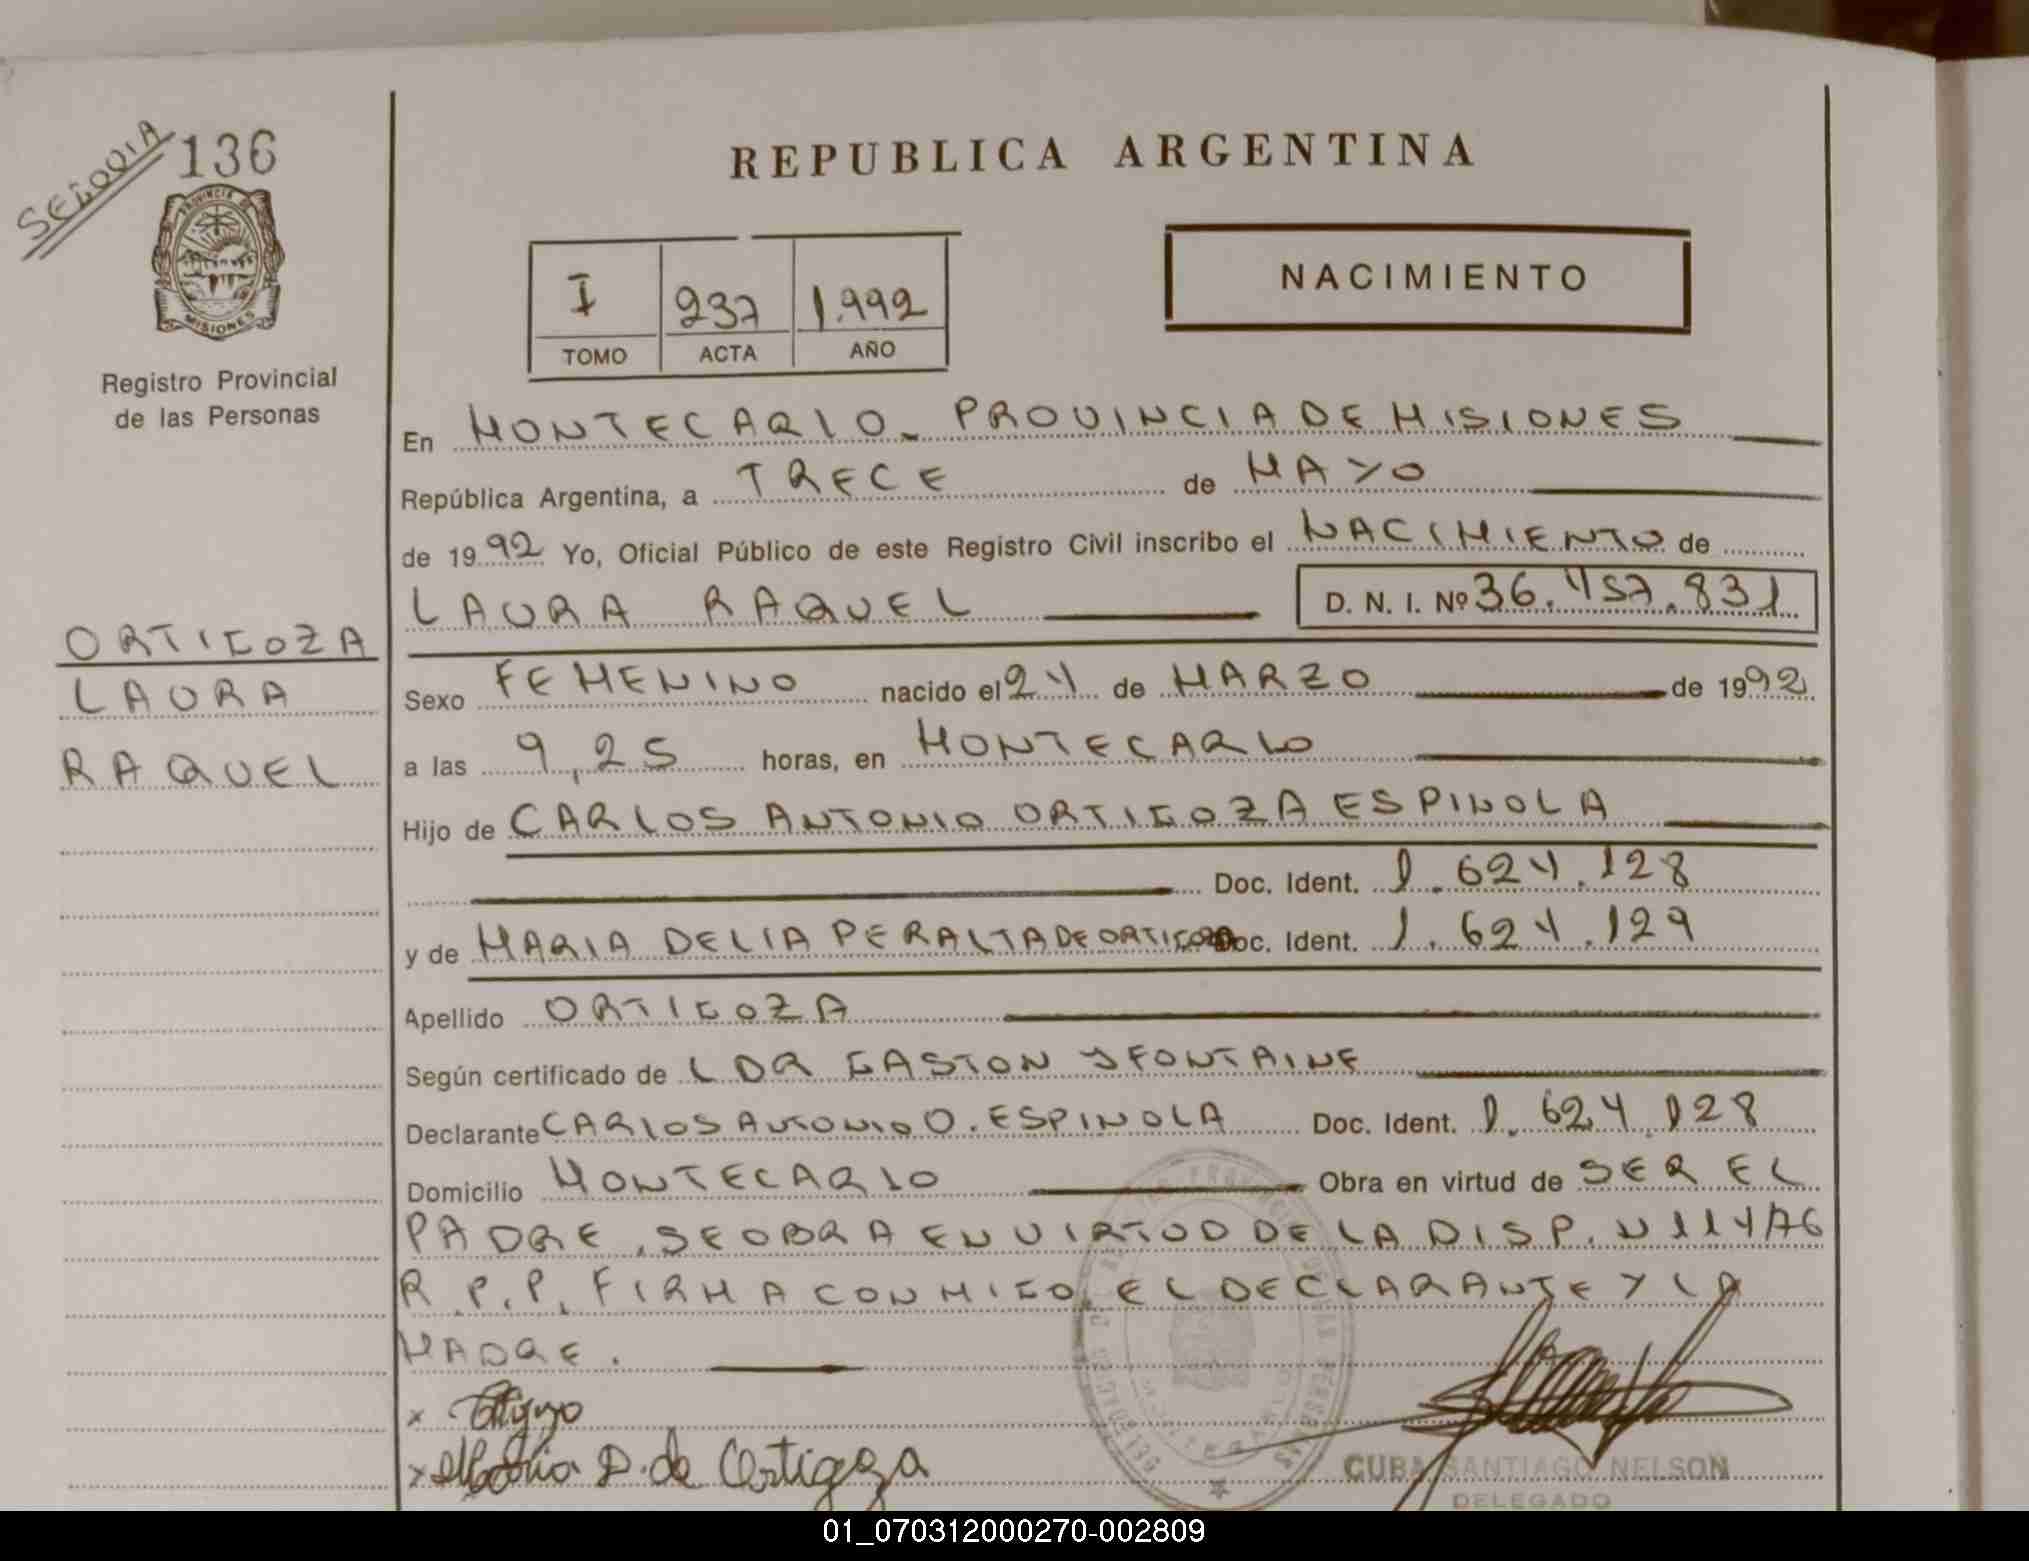 SEÑORIA
136
PROVINCIA DE
MISIONES
Registro Provincial
de las Personas
REPUBLICA ARGENTINA
NACIMIENTO
I 237 1.992
TOMO ACTA AÑO
En MONTECARLO - PROVINCIA DE MISIONES
República Argentina, a TRECE de MAYO
de 1992 Yo, Oficial Público de este Registro Civil inscribo el NACIMIENTO de
LAURA RAQUEL D. N. I. Nº 36.457.831
ORTIGOZA
LAURA
RAQUEL
Sexo FEMENINO nacido el 24 de MARZO de 1992
a las 9,25 horas, en MONTECARLO
Hijo de CARLOS ANTONIO ORTIGOZA ESPINOLA
Doc. Ident. 1.624.128
y de MARIA DELIA PERALTA DE ORTIGOZA Doc. Ident. 1.624.129
Apellido ORTIGOZA
Según certificado de LDR GASTON Y FONTAINE
Declarante CARLOS ANTONIO O. ESPINOLA Doc. Ident. 1.624.128
Domicilio MONTECARLO Obra en virtud de SER EL
PADRE. SE OBRA EN VIRTUD DE LA DISP. N 114/76
R.P.P. FIRMA CONMIGO EL DECLARANTE Y LA
MADRE.
x
x D. de Ortigoza
CUBA SANTIAGO NELSON
DELEGADO
01_070312000270-002809